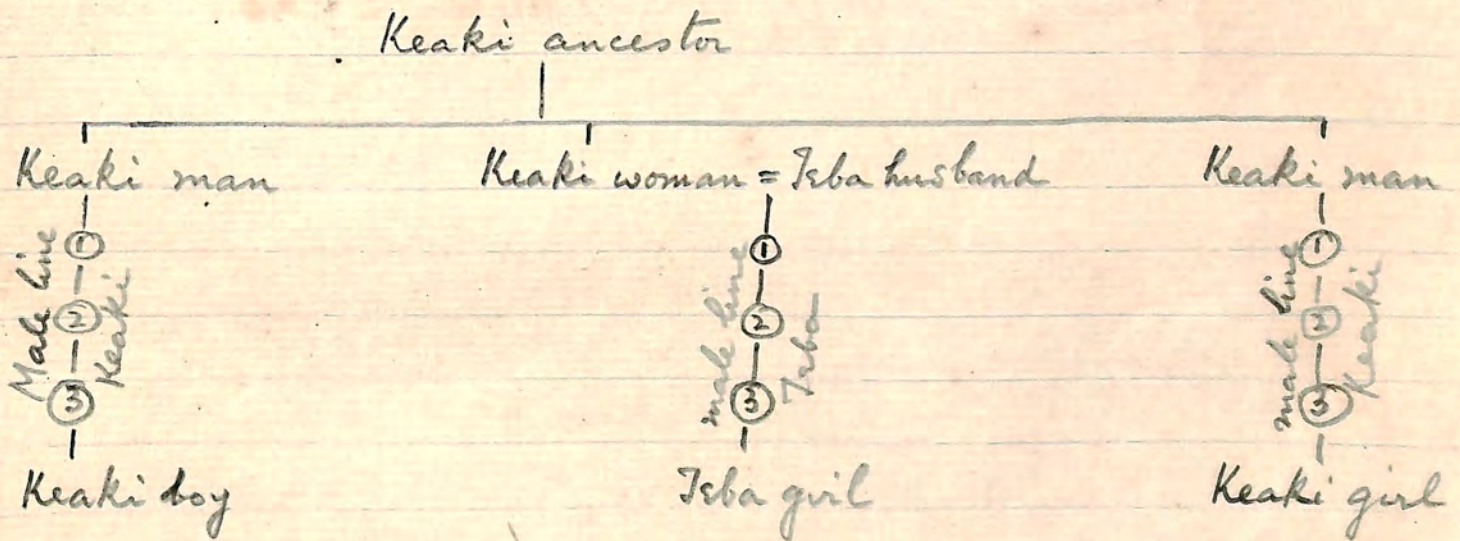 Keaki ancestor
Keaki man
Keaki woman = Teba husband
Keaki man
Male line
1
2
3
Keaki
male line
1
2
3
Teba
male line
1
2
3
Keaki
Keaki boy
Teba girl
Keaki girl